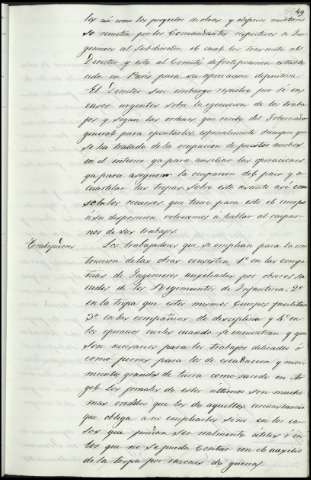 49
les así como los proyectos de obras y algunos
se remiten por los Comandantes respectivos a
al Subdirector el cual los transmite al
Director y este al Comité de fortificacion
cido en Paris para su aprovacion definitiva.
El Director sin embargo resuelve por sí en
casos urgentes sobre la ejecucion de los traba-
jos y segun las ordenes que recibe del Gobernador
general para ejecutarlos, especialmente siempre que
se ha tratado de la ocupacion de puestos
en el interior ya para auxiliar las operaciones
ya para asegurar la ocupacion del pais y a-
cuartelar las tropas. Sobre este asunto así como
sobre los recursos que tiene para este el cuerpo
a su disposicion, volveremos a hablar al ocupar-
nos de sus trabajos.
Trabajadores Los trabajadores que se emplean para la eje-
cucion de las obras consisten, 1º en las compa-
ñias de Ingenieros auxiliadas por obreros sa-
cados de los Regimientos de Infanteria. 2º
en la tropa que estos mismos Cuerpos facilitan
3º en las compañias de disciplina y 4º en
los obreros civiles cuando se encuentran y que
son necesarios para los trabajos delicados ó
como peones para los de escabacion y movi-
mientos grandes de tierra como sucede en Ar-
gel. Los jornales de estos últimos son mucho
mas crecidos que los de aquellos, circunstancia
que obliga a no emplearlos sino en los ca-
sos que puedan ser realmente utiles ó en
los que no se pueda contar con el auxilio
de la tropa por razones de guerra.